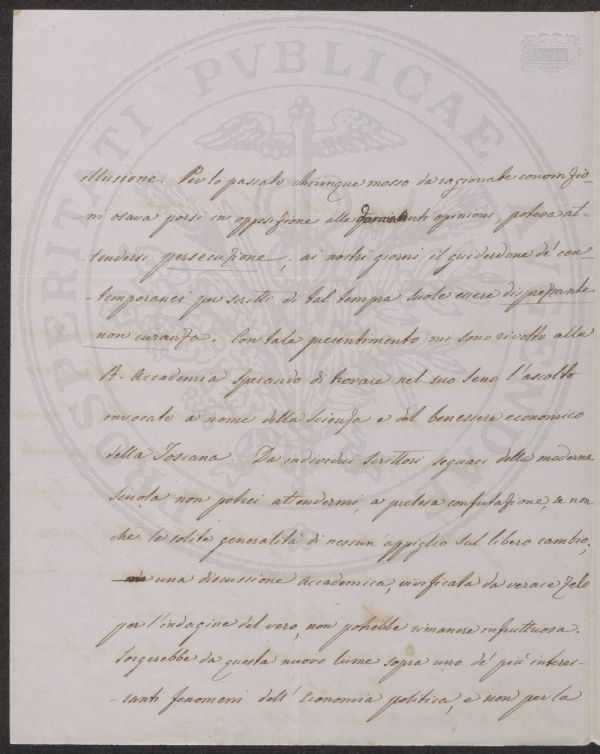 PROSPERITATI PVBLICAE AVGENDAE
illusione. Per lo passato chiunque mosso da ragionate convinzio-
ni osava porsi in opposizione alle dominanti opinioni, poteva at-
tendersi persecuzione; ai nostri giorni il guiderdone de' con-
-temporanei per scritti di tal tempra suole essere disprezzante
non curanza. Con tale presentimento mi sono rivolto alla
R. Accademia sperando di trovare nel suo seno l'ascolto
invocato a nome della Scienza e del benessere economico
della Toscana. Da individui Scrittori seguaci della moderna
Scuola non potrei attendermi, a pretesa confutazione, se non
che le solite generalità di nessun appiglio sul libero cambio;
una discussione Accademica, vivificata da verace Zelo
per l'indagine del vero, non potrebbe rimanere infruttuosa.
Sorgerebbe da questa nuovo lume sopra uno de' più interes-
-santi fenomeni dell'Economia politica, e non per la